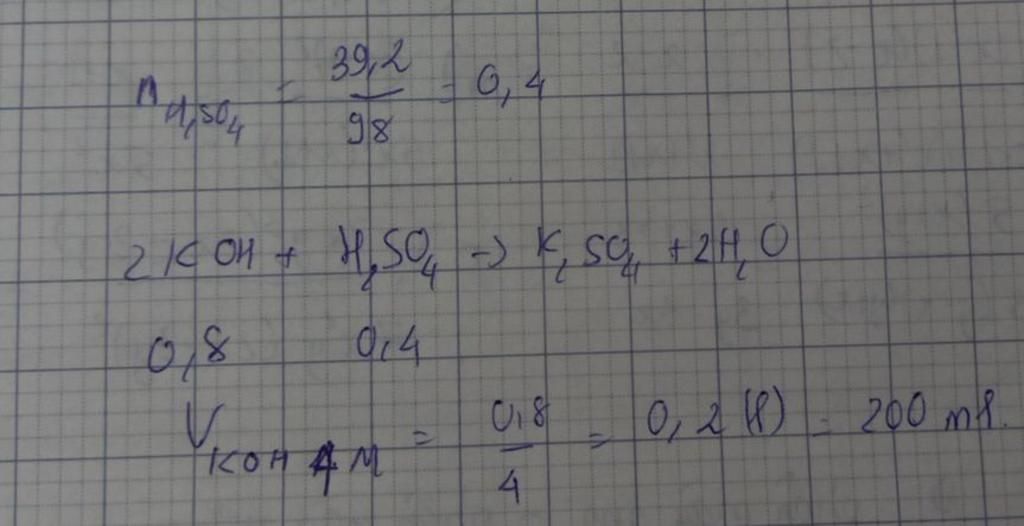 n H₂SO₄ = 39,2/98 = 0,4
2KOH + H₂SO₄ → K₂SO₄ + 2H₂O
0,8 0,4
V KOH 4M = 0,8/4 = 0,2 (l) = 200 ml.